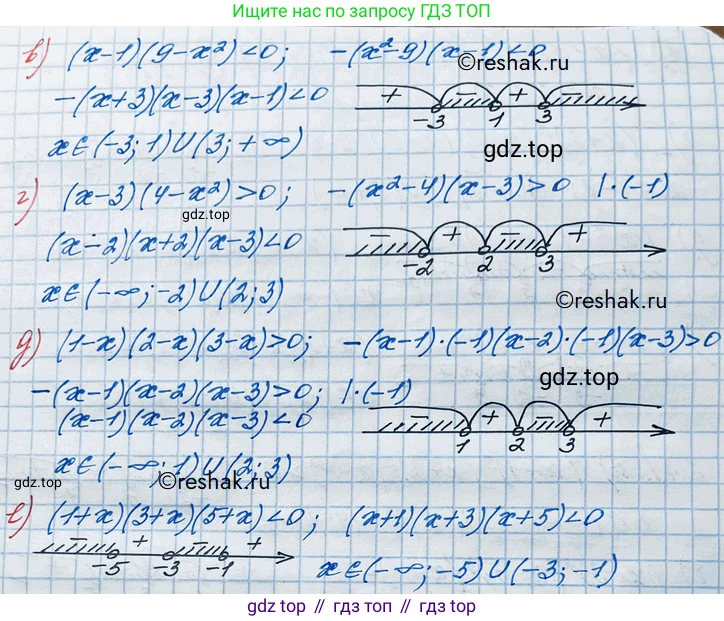 Ищите нас по запросу ГДЗ ТОП
в) (x-1)(9-x²)<0; -(x²-9)(x-1)<0
©reshak.ru
-(x+3)(x-3)(x-1)<0
+ - + -
-3 1 3
x∈(-3;1)∪(3;+∞)
gdz.top
г) (x-3)(4-x²)>0; -(x²-4)(x-3)>0 |·(-1)
gdz.top
(x-2)(x+2)(x-3)<0
- + - +
-2 2 3
x∈(-∞;-2)∪(2;3)
©reshak.ru
д) (1-x)(2-x)(3-x)>0; -(x-1)·(-1)(x-2)·(-1)(x-3)>0
gdz.top
-(x-1)(x-2)(x-3)>0; |·(-1)
(x-1)(x-2)(x-3)<0
- + - +
1 2 3
x∈(-∞;1)∪(2;3)
gdz.top
©reshak.ru
е) (1+x)(3+x)(5+x)<0; (x+1)(x+3)(x+5)<0
- + - +
-5 -3 -1
x∈(-∞;-5)∪(-3;-1)
gdz.top // гдз.топ // gdz.top // гдз.топ // gdz.top